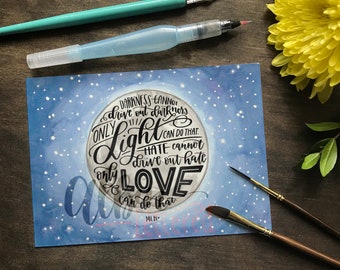 DARKNESS CANNOT
drive out darkness
ONLY
Light CAN DO THAT.
HATE cannot
drive out hate
only LOVE
can do that
MLK